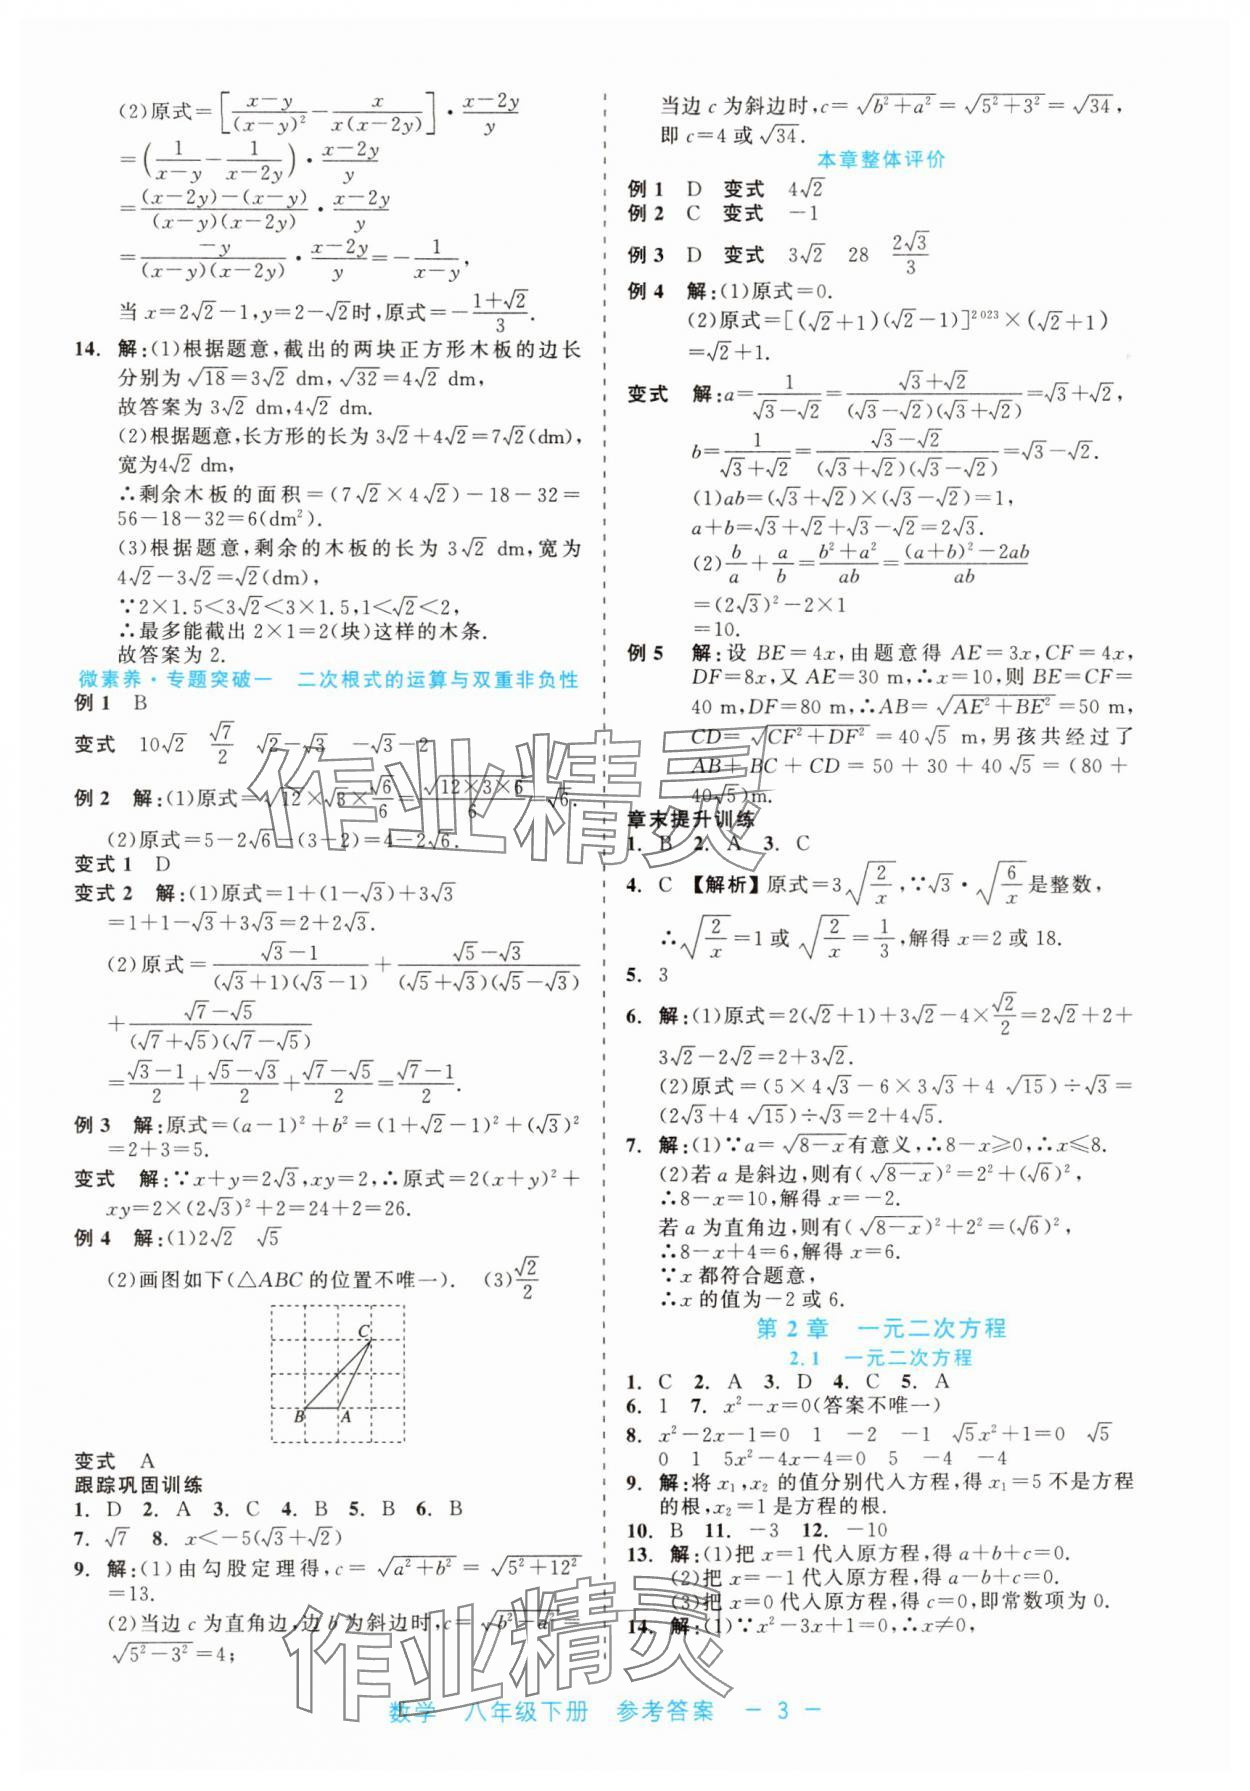 (2)原式=[(x-y)/(x-y)²-x/(x(x-2y))]·(x-2y)/y
=(1/(x-y)-1/(x-2y))·(x-2y)/y
=((x-2y)-(x-y))/((x-y)(x-2y))·(x-2y)/y
=-y/((x-y)(x-2y))·(x-2y)/y=-1/(x-y),
当 x=2√2-1,y=2-√2时,原式=-(1+√2)/3.
14. 解:(1)根据题意,截出的两块正方形木板的边长
分别为 √18=3√2 dm,√32=4√2 dm,
故答案为 3√2 dm,4√2 dm.
(2)根据题意,长方形的长为 3√2+4√2=7√2(dm),
宽为4√2 dm,
∴剩余木板的面积=(7√2×4√2)-18-32=
56-18-32=6(dm²).
(3)根据题意,剩余的木板的长为 3√2 dm,宽为
4√2-3√2=√2(dm),
∵2×1.5<3√2<3×1.5,1<√2<2,
∴最多能截出 2×1=2(块)这样的木条.
故答案为 2.
微素养·专题突破一 二次根式的运算与双重非负性
例 1 B
变式 10√2 √7/2 √2-√3 -√3-2
例 2 解:(1)原式=√12×√3×√6/6=√(12×3×6)/6=√6.
(2)原式=5-2√6-(3-2)=4-2√6.
变式 1 D
变式 2 解:(1)原式=1+(1-√3)+3√3
=1+1-√3+3√3=2+2√3.
(2)原式=(√3-1)/((√3+1)(√3-1))+(√5-√3)/((√5+√3)(√5-√3))
+(√7-√5)/((√7+√5)(√7-√5))
=(√3-1)/2+(√5-√3)/2+(√7-√5)/2=(√7-1)/2.
例 3 解:原式=(a-1)²+b²=(1+√2-1)²+(√3)²
=2+3=5.
变式 解:∵x+y=2√3,xy=2,∴原式=2(x+y)²+
xy=2×(2√3)²+2=24+2=26.
例 4 解:(1)2√2 √5
(2)画图如下(△ABC 的位置不唯一). (3)√2/2
C
B A
变式 A
跟踪巩固训练
1. D 2. A 3. C 4. B 5. B 6. B
7. √7 8. x<-5(√3+√2)
9. 解:(1)由勾股定理得,c=√(a²+b²)=√(5²+12²)
=13.
(2)当边 c 为直角边,边 b 为斜边时,c=√(b²-a²)=
√(5²-3²)=4;
当边 c 为斜边时,c=√(b²+a²)=√(5²+3²)=√34,
即 c=4 或 √34.
本章整体评价
例 1 D 变式 4√2
例 2 C 变式 -1
例 3 D 变式 3√2 28 2√3/3
例 4 解:(1)原式=0.
(2)原式=[(√2+1)(√2-1)]²⁰²³×(√2+1)
=√2+1.
变式 解:a=1/(√3-√2)=(√3+√2)/((√3-√2)(√3+√2))=√3+√2,
b=1/(√3+√2)=(√3-√2)/((√3+√2)(√3-√2))=√3-√2.
(1)ab=(√3+√2)×(√3-√2)=1,
a+b=√3+√2+√3-√2=2√3.
(2)b/a+a/b=(b²+a²)/ab=((a+b)²-2ab)/ab
=(2√3)²-2×1
=10.
例 5 解:设 BE=4x,由题意得 AE=3x,CF=4x,
DF=8x,又 AE=30 m,∴x=10,则 BE=CF=
40 m,DF=80 m,∴AB=√(AE²+BE²)=50 m,
CD=√(CF²+DF²)=40√5 m,男孩共经过了
AB+BC+CD=50+30+40√5=(80+
40√5)m.
章末提升训练
1. B 2. A 3. C
4. C 【解析】原式=3√(2/x),∵√3·√(6/x)是整数,
∴√(2/x)=1或 √(2/x)=1/3,解得 x=2 或 18.
5. 3
6. 解:(1)原式=2(√2+1)+3√2-4×√2/2=2√2+2+
3√2-2√2=2+3√2.
(2)原式=(5×4√3-6×3√3+4√15)÷√3=
(2√3+4√15)÷√3=2+4√5.
7. 解:(1)∵a=√(8-x)有意义,∴8-x≥0,∴x≤8.
(2)若 a 是斜边,则有(√(8-x))²=2²+(√6)²,
∴8-x=10,解得 x=-2.
若 a 为直角边,则有(√(8-x))²+2²=(√6)²,
∴8-x+4=6,解得 x=6.
∵x 都符合题意,
∴x 的值为-2 或 6.
第 2 章 一元二次方程
2.1 一元二次方程
1. C 2. A 3. D 4. C 5. A
6. 1 7. x²-x=0(答案不唯一)
8. x²-2x-1=0 1 -2 -1 √5x²+1=0 √5
0 1 5x²-4x-4=0 5 -4 -4
9. 解:将 x₁,x₂ 的值分别代入方程,得 x₁=5 不是方程
的根,x₂=1 是方程的根.
10. B 11. -3 12. -10
13. 解:(1)把 x=1代入原方程,得 a+b+c=0.
(2)把 x=-1 代入原方程,得 a-b+c=0.
(3)把 x=0代入原方程,得 c=0,即常数项为 0.
14. 解:(1)∵x²-3x+1=0,∴x≠0,
作业精灵
作业精灵
数学 八年级下册 参考答案 - 3 -